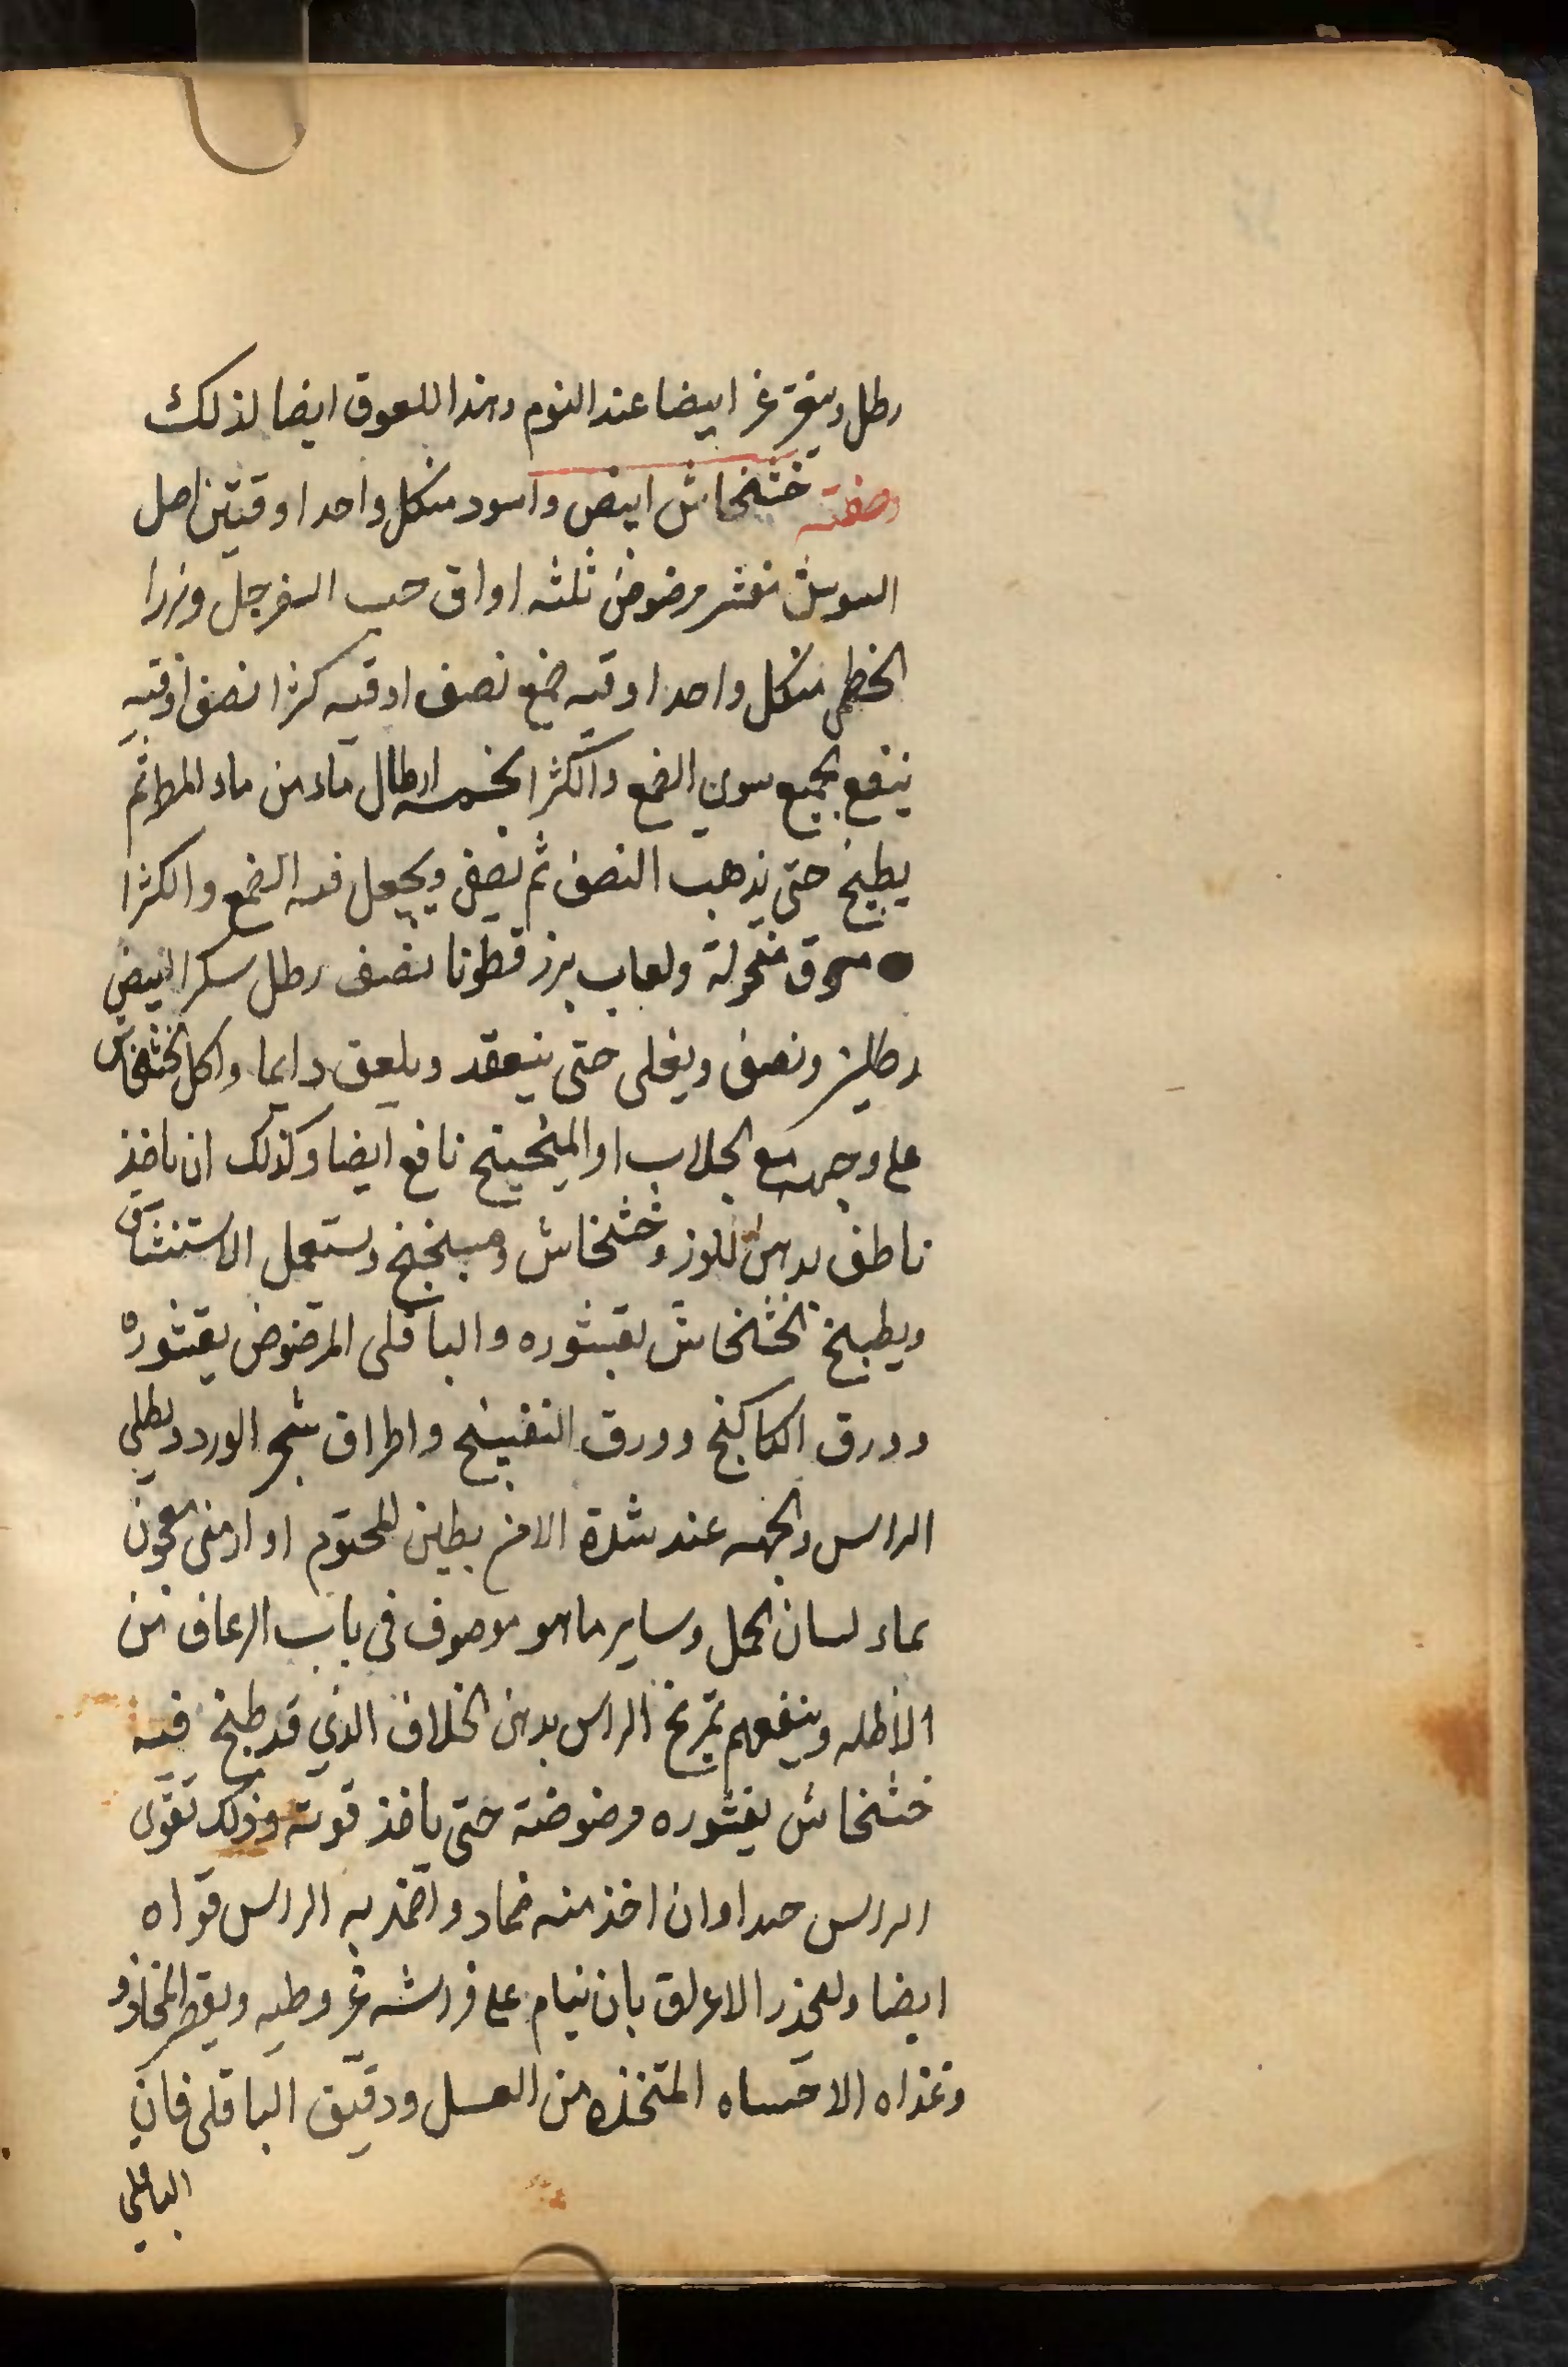 رطل ويتغرغر ايضا عند النوم وهذا اللعوق ايضا لذلك
وصفته خشخاش ابيض واسود منكل واحد اوقيتين اصل
السوسن مقشر مرضوض ثلثه اواق حب السفرجل وبزر
الخطمى منكل واحد اوقيه صمغ نصف اوقيه كثرا نصف اوقيه
ينقع الجميع سوى الصمغ والكثرا بخمسه ارطال ماء من ماء المطر ثم
يطبخ حتى يذهب النصف ثم يصفى ويجعل فيه الصمغ والكثرا
مسحوقة منخولة ولعاب بزر قطونا نصف رطل سكر ابيض
رطلين ونصف ويغلى حتى ينعقد ويلعق دايما واكل الخشخاش
على وجهه مع الجلاب او الميبختج نافع ايضا وكذلك ان ياخذ
ناطف بدهن اللوز وخشخاش وميبختج ويستعمل الاستنشاق
ويطبخ الخشخاش بقشوره والباقلى المرضوض بقشوره
وورق الكاكنج وورق البنفسج واطراف شجر الورد ويطلى
الراس والجبهه عند شدة الامر بطين المختوم او ارمنى معجون
بماء لسان الحمل وساير ما هو موصوف فى باب الرعاف من
الاطليه وينفعهم تمريخ الراس بدهن الخلاف الذي قد طبخ فيه
خشخاش بقشوره مرضوضة حتى ياخذ قوته وذلك يقوى
الراس جدا وان اخذ منه ضماد واضمد به الراس قواه
ايضا وليحذر الاغراق بان ينام على فراشه غير وطيه ويقصر المخاد و
وغذاه الاحساء المتخذه من العسل ودقيق الباقلى فان
الباقلي